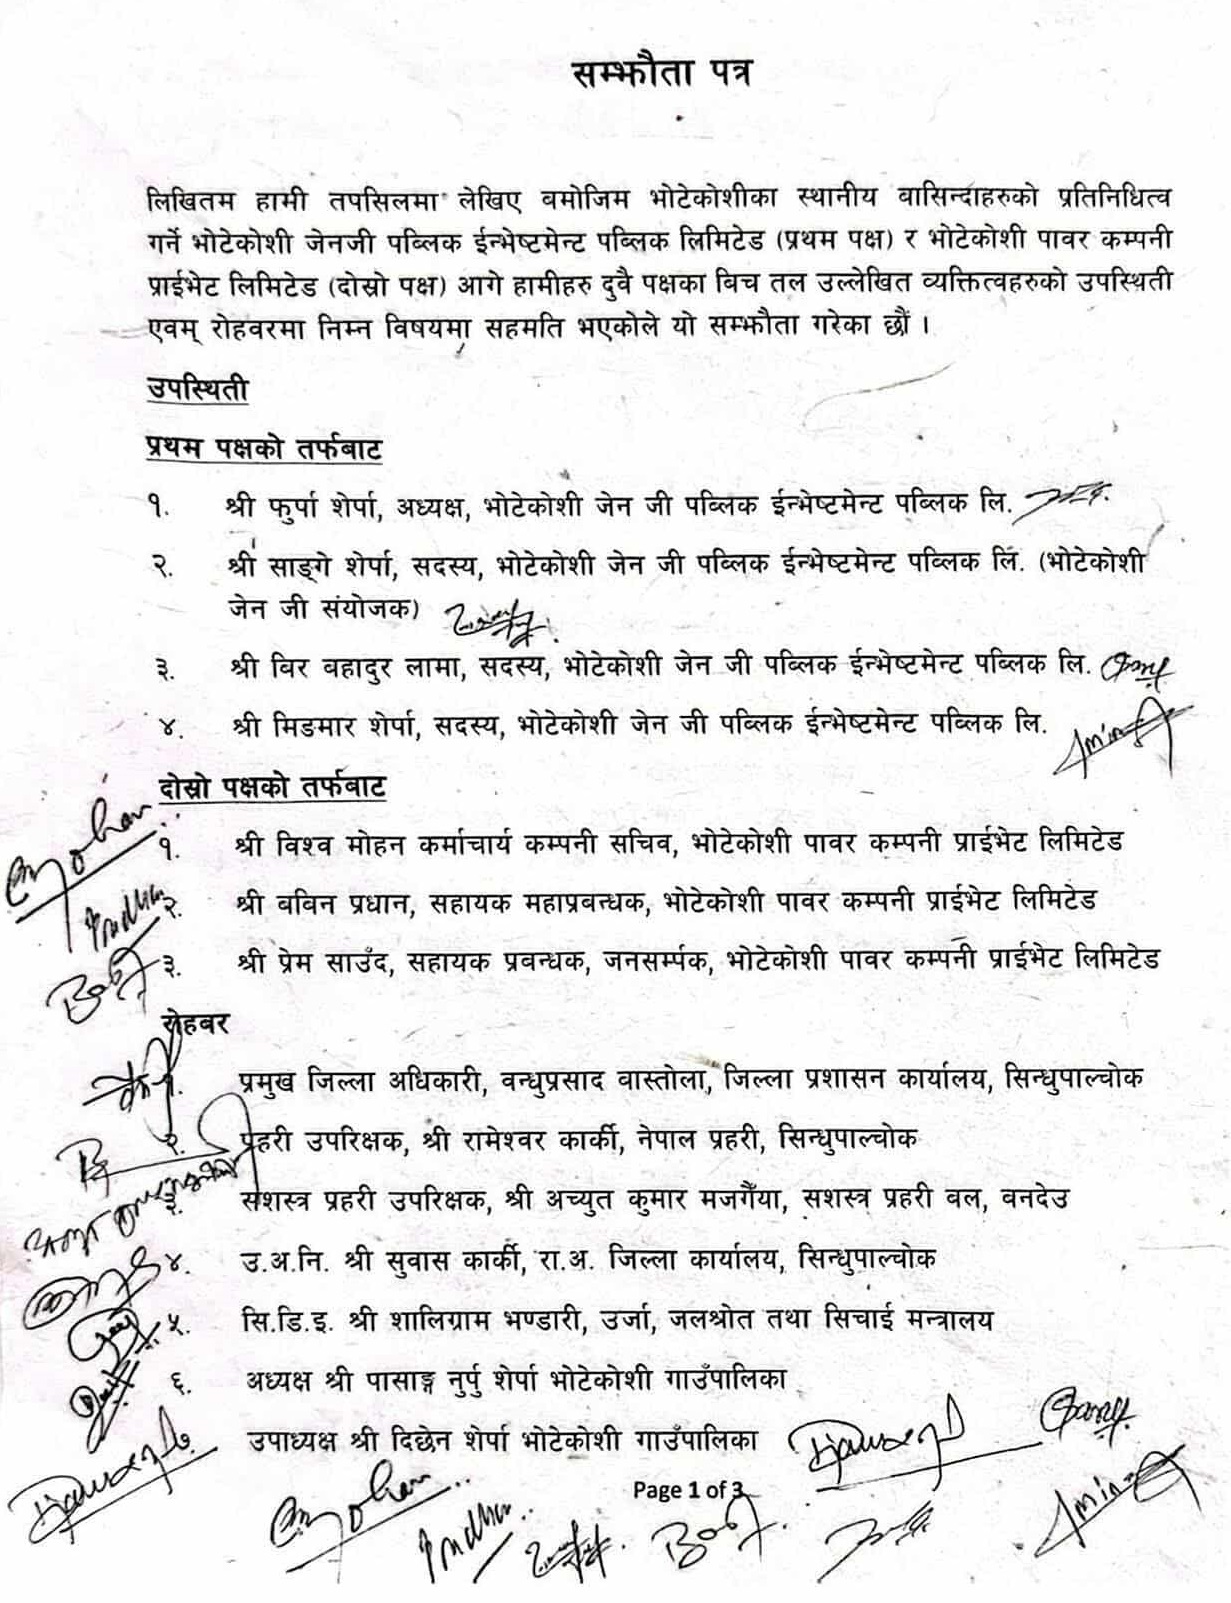 सम्झौता पत्र
लिखितम हामी तपसिलमा लेखिए बमोजिम भोटेकोशीका स्थानीय बासिन्दाहरुको प्रतिनिधित्व
गर्ने भोटेकोशी जेनजी पब्लिक ईन्भेष्टमेन्ट पब्लिक लिमिटेड (प्रथम पक्ष) र भोटेकोशी पावर कम्पनी
प्राईभेट लिमिटेड (दोस्रो पक्ष) आगे हामीहरु दुवै पक्षका बिच तल उल्लेखित व्यक्तित्वहरुको उपस्थिती
एवम् रोहवरमा निम्न विषयमा सहमति भएकोले यो सम्झौता गरेका छौं ।
उपस्थिती
प्रथम पक्षको तर्फबाट
१. श्री फुर्पा शेर्पा, अध्यक्ष, भोटेकोशी जेन जी पब्लिक ईन्भेष्टमेन्ट पब्लिक लि.
२. श्री साङ्गे शेर्पा, सदस्य, भोटेकोशी जेन जी पब्लिक ईन्भेष्टमेन्ट पब्लिक लि. (भोटेकोशी
जेन जी संयोजक)
३. श्री बिर बहादुर लामा, सदस्य, भोटेकोशी जेन जी पब्लिक ईन्भेष्टमेन्ट पब्लिक लि.
४. श्री मिङमार शेर्पा, सदस्य, भोटेकोशी जेन जी पब्लिक ईन्भेष्टमेन्ट पब्लिक लि.
दोस्रो पक्षको तर्फबाट
१. श्री विश्व मोहन कर्माचार्य कम्पनी सचिव, भोटेकोशी पावर कम्पनी प्राईभेट लिमिटेड
२. श्री बबिन प्रधान, सहायक महाप्रबन्धक, भोटेकोशी पावर कम्पनी प्राईभेट लिमिटेड
३. श्री प्रेम साउँद, सहायक प्रबन्धक, जनसर्म्पक, भोटेकोशी पावर कम्पनी प्राईभेट लिमिटेड
रोहबर
१. प्रमुख जिल्ला अधिकारी, वन्धुप्रसाद वास्तोला, जिल्ला प्रशासन कार्यालय, सिन्धुपाल्चोक
२. प्रहरी उपरिक्षक, श्री रामेश्वर कार्की, नेपाल प्रहरी, सिन्धुपाल्चोक
३. सशस्त्र प्रहरी उपरिक्षक, श्री अच्युत कुमार मजगैँया, सशस्त्र प्रहरी वल, वनदेउ
४. उ.अ.नि. श्री सुवास कार्की, रा.अ. जिल्ला कार्यालय, सिन्धुपाल्चोक
५. सि.डि.इ. श्री शालिग्राम भण्डारी, उर्जा, जलश्रोत तथा सिचाई मन्त्रालय
६. अध्यक्ष श्री पासाङ्ग नुर्पु शेर्पा भोटेकोशी गाउँपालिका
७. उपाध्यक्ष श्री दिछेन शेर्पा भोटेकोशी गाउँपालिका
Page 1 of 3